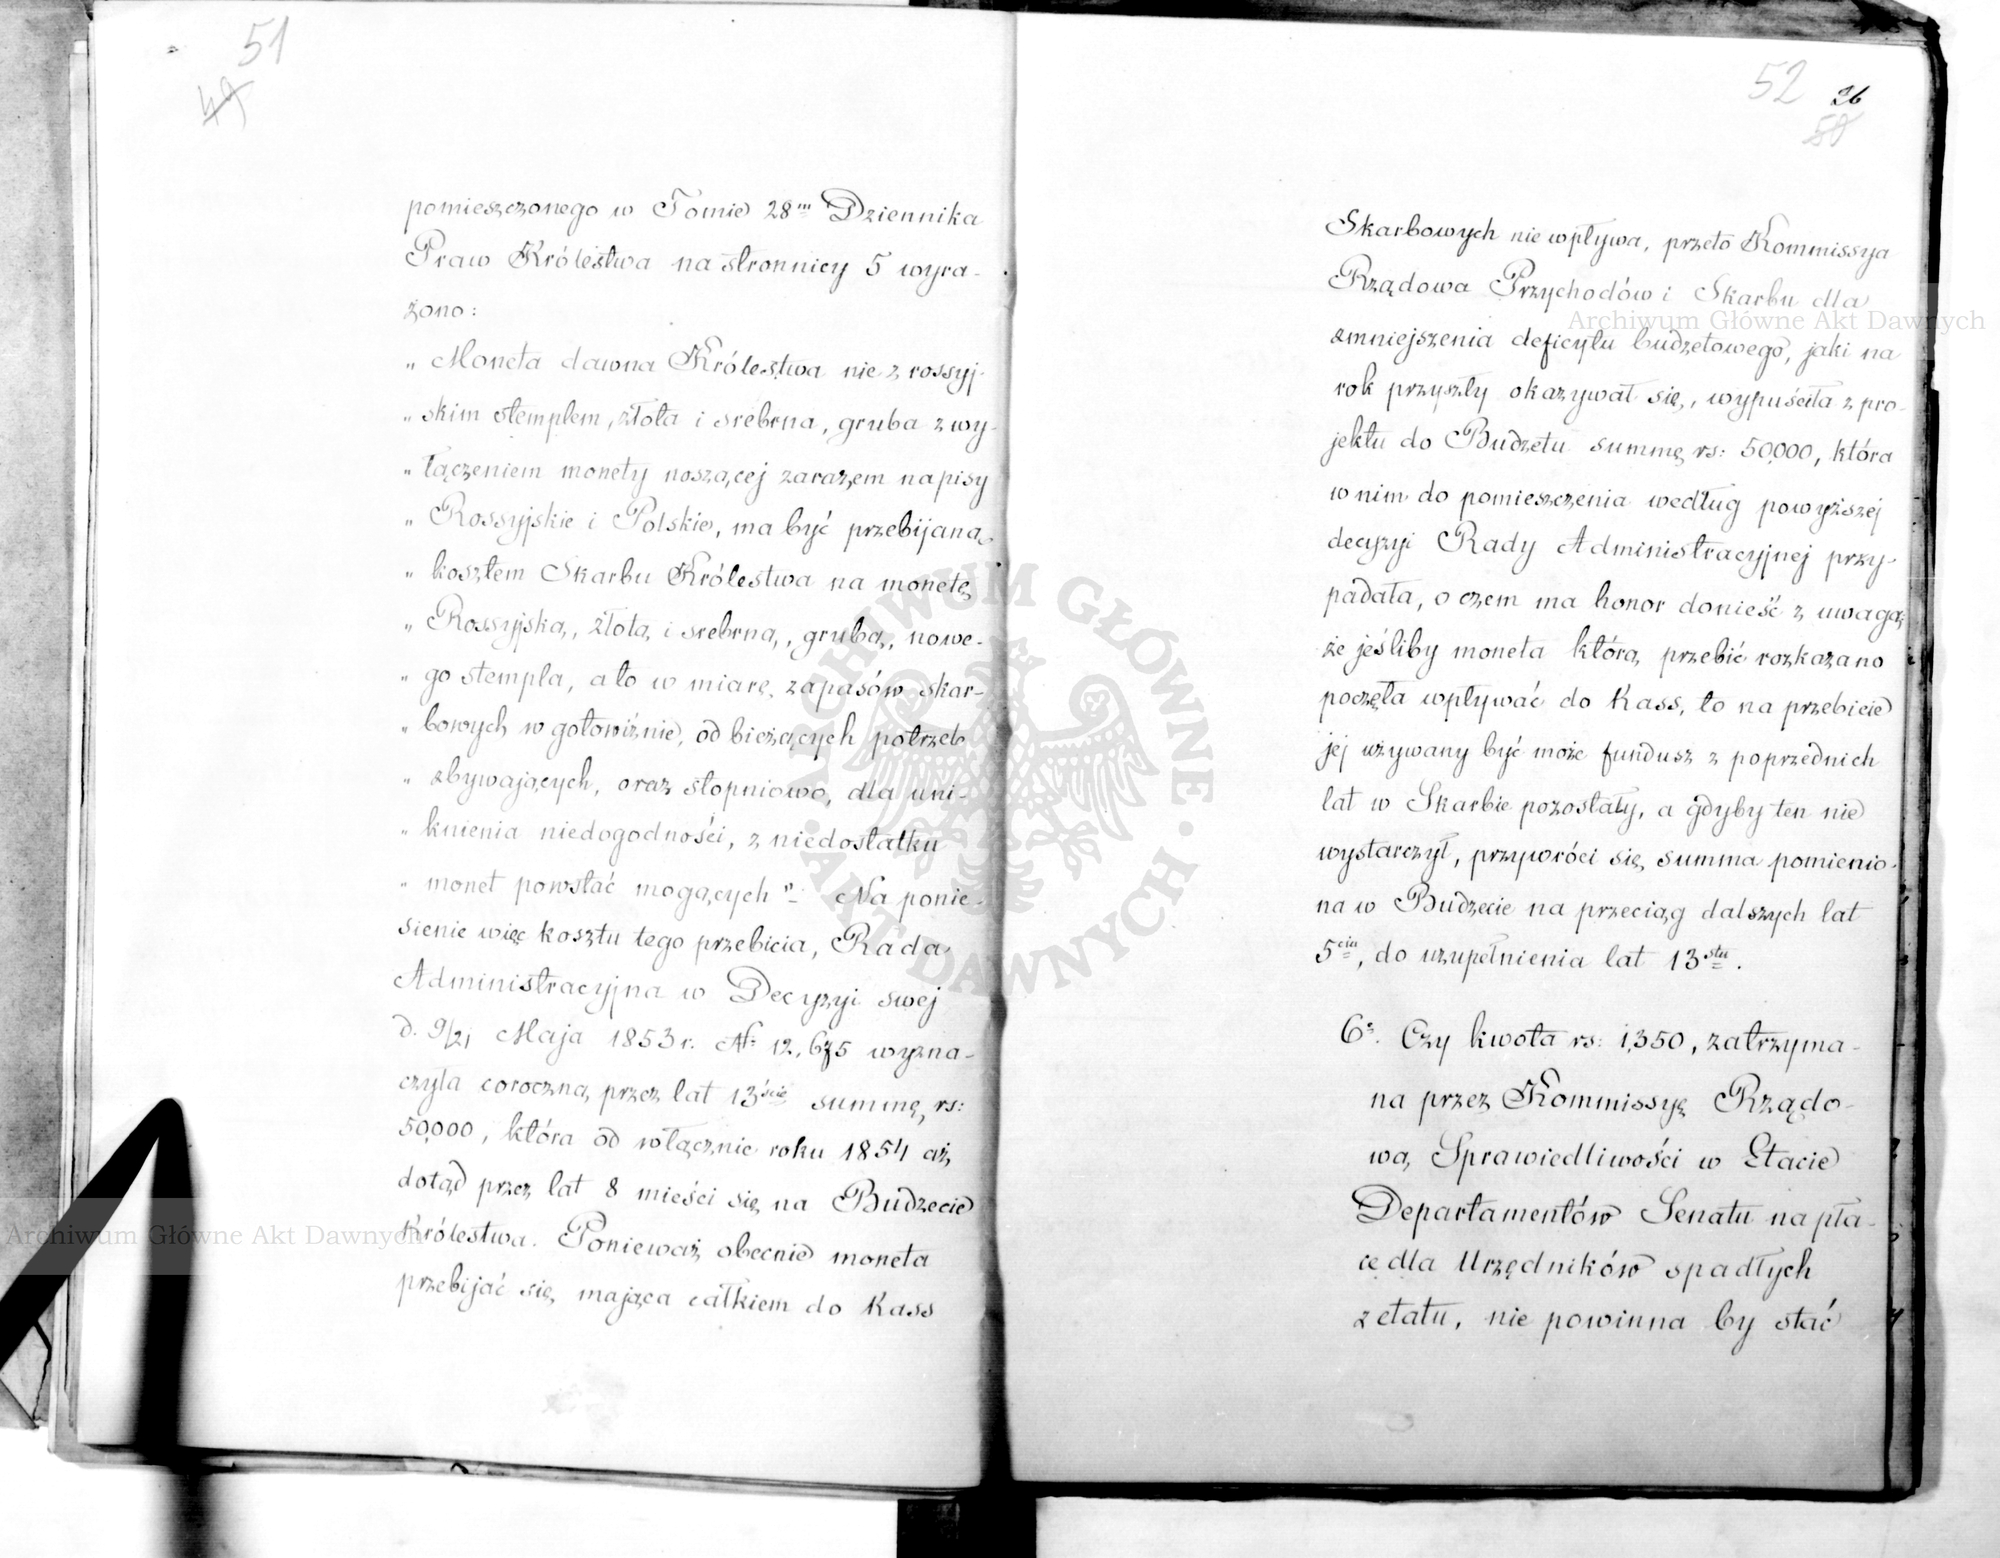 51
49
pomieszczonego w Tomie 28m Dziennika
Praw Królestwa na stronnicy 5 wyra-
żono:
„ Moneta dawna Królestwa nie z rossyj-
„ skim stemplem, złota i srebrna, gruba z wy-
„ łączeniem monety noszącej zarazem napisy
„ Rossyjskie i Polskie, ma być przebijaną
„ kosztem Skarbu Królestwa na monetę
„ Rossyjską, złotą i srebrną, grubą, nowe-
„ go stempla, a to w miarę zapasów skar-
„ bowych w gotowiźnie, od bieżących potrzeb
„ zbywających, oraz stopniowo, dla uni-
„ knienia niedogodności, z niedostatku
„ monet powstać mogących" Na ponie-
sienie więc kosztu tego przebicia, Rada
Administracyjna w Decyzyi swej
d. 9/21 Maja 1853 r. No 12,675 wyzna-
czyła coroczną przez lat 13ście summę rs:
50,000, która od włącznie roku 1854 aż
dotąd przez lat 8 mieści się na Budżecie
Królestwa. Ponieważ obecnie moneta
przebijać się mająca całkiem do Kass
52 26
50
Skarbowych nie wpływa, przeto Kommissya
Rządowa Przychodów i Skarbu dla
zmniejszenia deficytu budżetowego, jaki na
rok przyszły okazywał się, wypuściła z pro-
jektu do Budżetu summę rs: 50,000, która
w nim do pomieszczenia według powyższej
decyzyi Rady Administracyjnej przy-
padała, o czem ma honor donieść z uwagą
że jeśliby moneta którą przebić rozkazano
poczęła wpływać do Kass, to na przebicie
jej używany być może fundusz z poprzednich
lat w Skarbie pozostały, a gdyby ten nie
wystarczył, przywróci się summa pomienio-
na w Budżecie na przeciąg dalszych lat
5ciu, do uzupełnienia lat 13stu.
6o. Czy kwota rs: 1,350, zatrzyma-
na przez Kommissyę Rządo-
wą Sprawiedliwości w Etacie
Departamentów Senatu na pła-
cę dla Urzędników spadłych
z etatu, nie powinna by stać
Archiwum Główne Akt Dawnych
Archiwum Główne Akt Dawnych
ARCHIWUM GŁÓWNE · AKT DAWNYCH ·